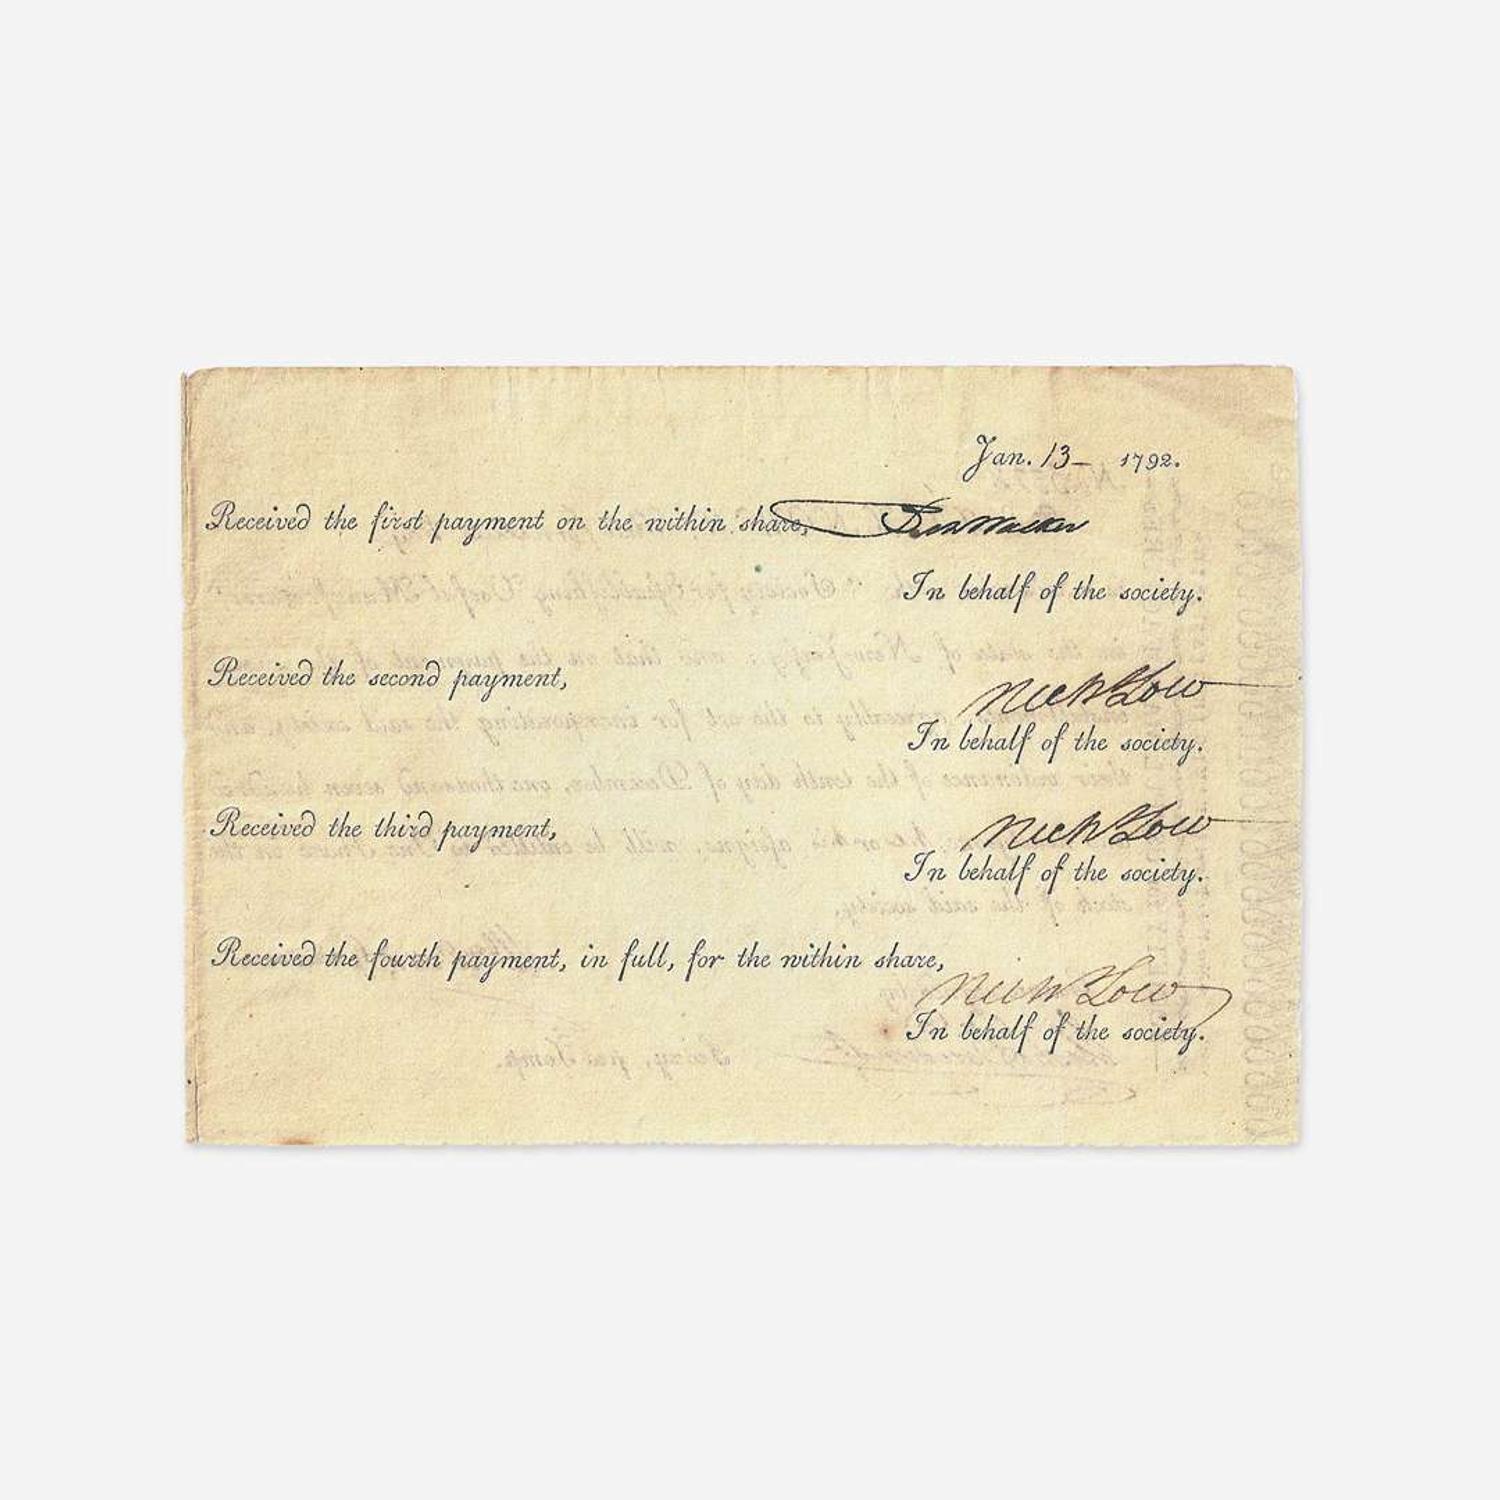 Jan. 13 — 1792.
Received the first payment on the within share, Ben Walker
In behalf of the society.
Received the second payment,
Nich Low
In behalf of the society.
Received the third payment,
Nich Low
In behalf of the society.
Received the fourth payment, in full, for the within share,
Nich Low
In behalf of the society.